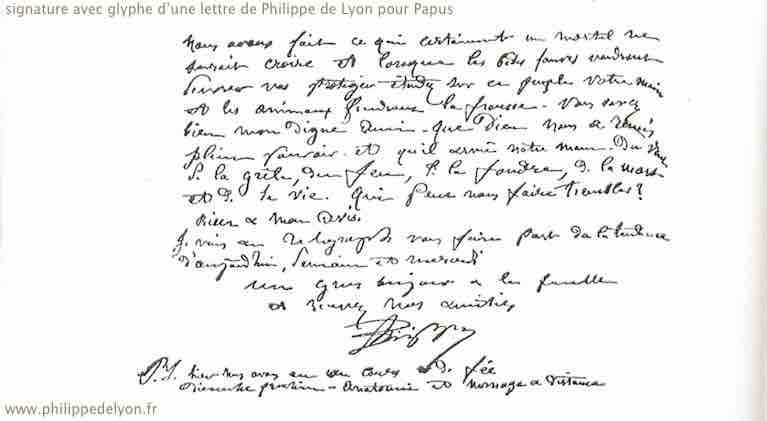 signature avec glyphe d'une lettre de Philippe de Lyon pour Papus
Nous avons fait ce qui certainement un mortel ne
saurait croire et lorsque les bêtes fauves voudront
vos protéger étendez sur ce peuple votre main
et les animaux la frousse. Vous savez
bien mon digne ami que Dieu nous a remis
plein pouvoir et qu'il arme notre main. Du vent
d. la grêle, du feu, d. la foudre, d. la mort
et d. la vie. Qui peut nous faire trembler?
Rien à mon avis.
J. vais au vous faire part de la
d'aujourdhui, demain et mercredi
un gros bonjour a la famille
et recevez nos amitiés
Philippe
P.S. hier nous avons eu un cours de fée
Dimanche prochain - Anatomie et a distance
www.philippedelyon.fr